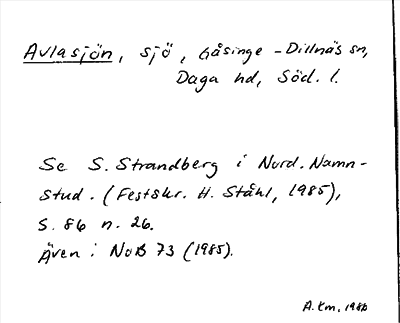 Avlasjön, sjö, Gåsinge-Dillnäs sn,
Daga hd, Söd. l.
Se S. Strandberg i Nord. Namn-
stud. (Festskr. H. Ståhl, 1985),
s. 86 n. 26.
Även i NoB 73 (1985).
A. Km, 1986